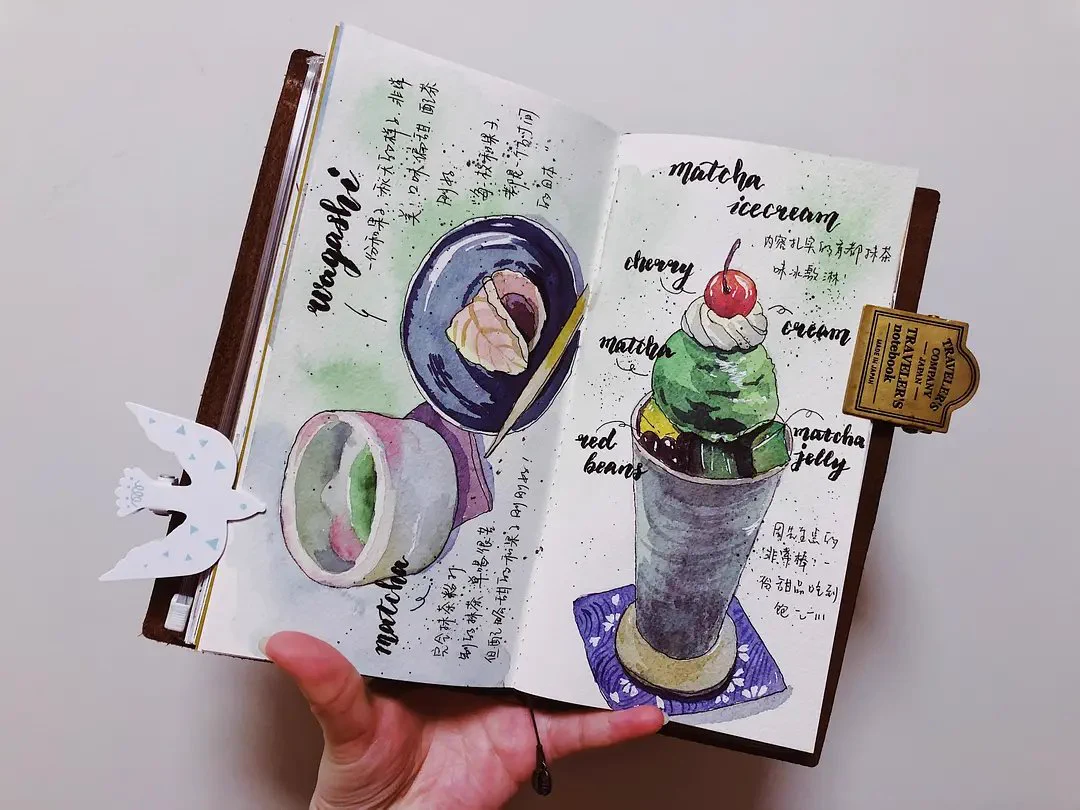 wagashi
一份和果子,秋天的样子,非常
美,口味偏甜,配茶
刚好.
"每一枚和果子,
一个方寸间
的日本."
matcha
完全抹茶粉
制的抹茶,单喝很苦
但配略甜的和果子刚刚好!
matcha
icecream
内容扎实的京都抹茶
味冰激淋!
cherry
cream
matcha
red
beans
matcha
jelly
的
非常棒!一
份甜品吃到
饱
TRAVELER'S
COMPANY
JAPAN
TRAVELER'S
notebook
MADE IN JAPAN